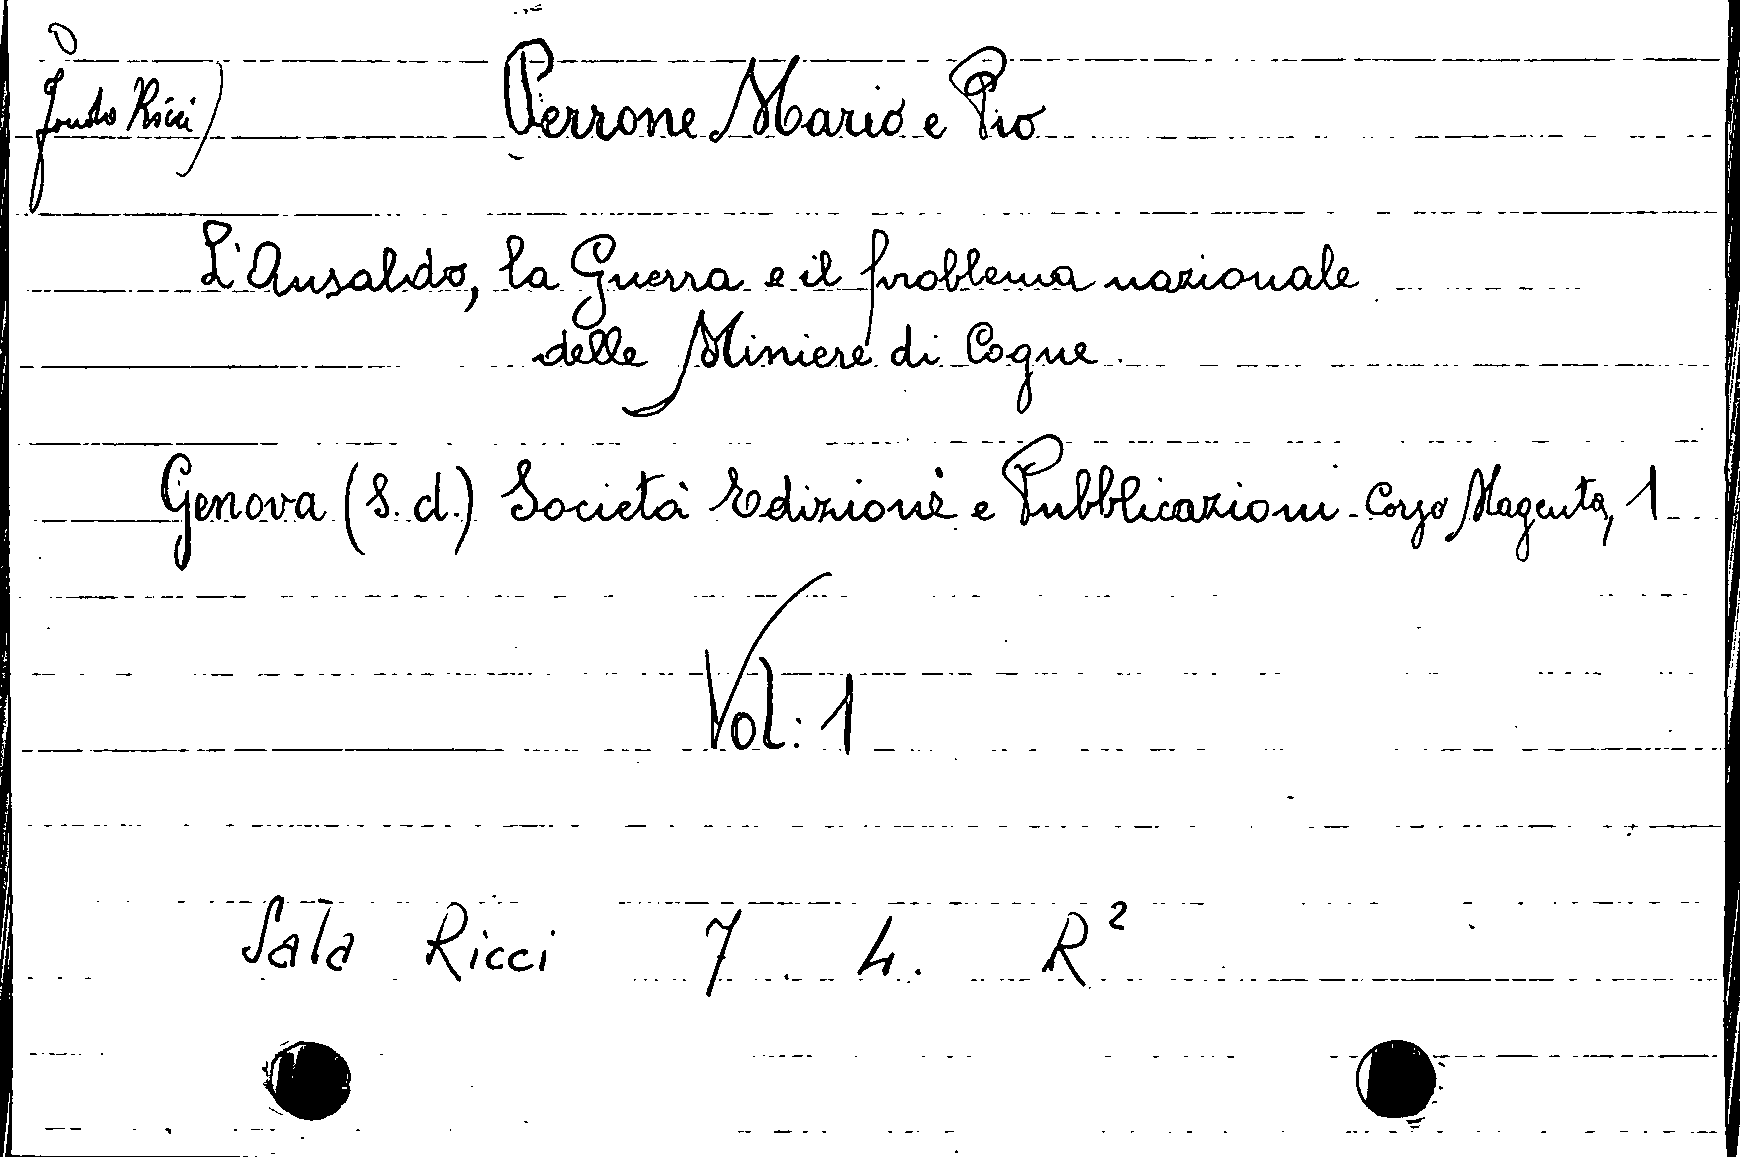 O
Fondo Ricci)
Perrone Mario e Pio
L'Ansaldo, la Guerra e il problema nazionale
delle Miniere di Cogne.
Genova (s.d.) Società Edizioni e Pubblicazioni - Corso Magenta, 1
Vol: 1
Sala Ricci 7. 4. R²